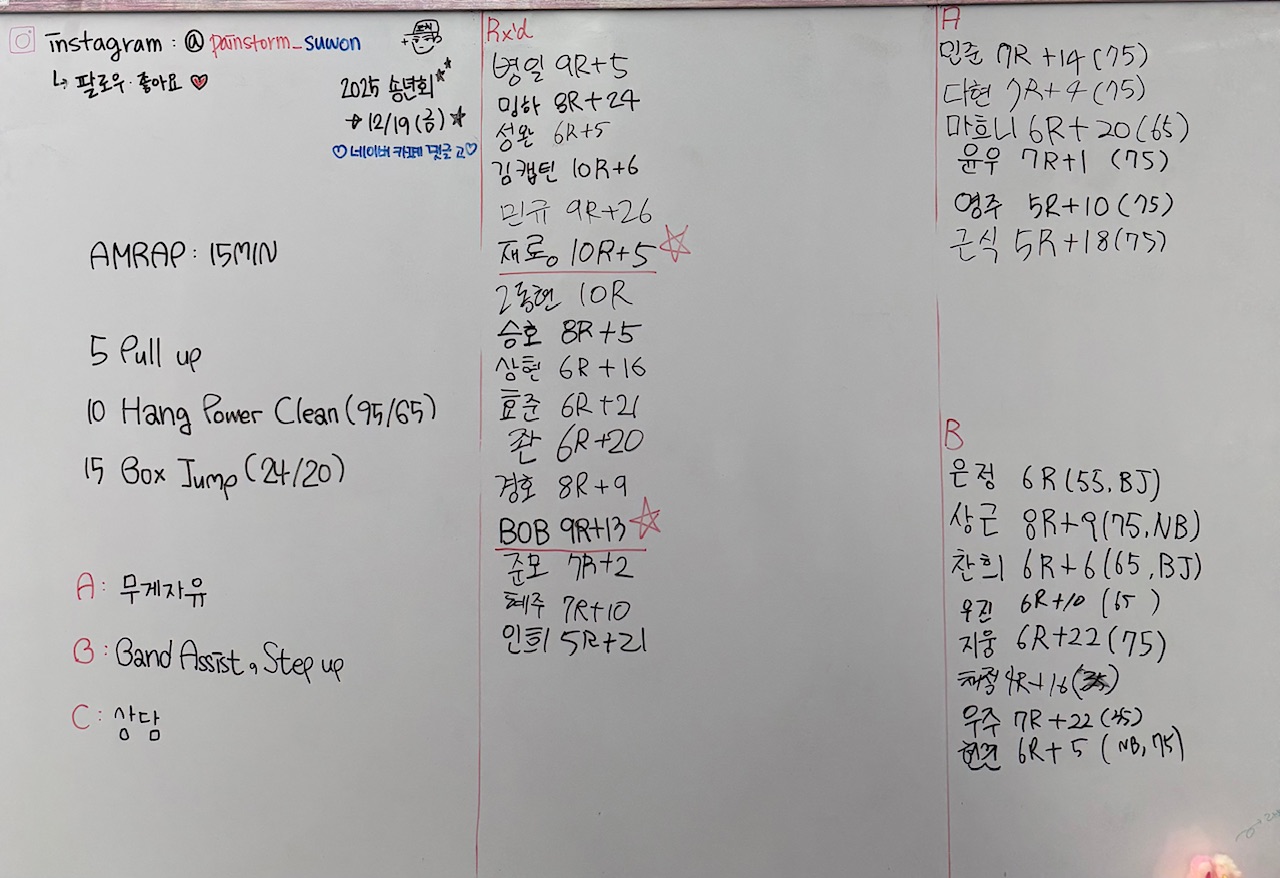 instagram : @ painstorm_suwon
↳ 팔로우·좋아요 ♡
2025 송년회
→ 12/19 (금)
♡네이버 카페 댓글 고♡
AMRAP : 15MIN
5 Pull up
10 Hang Power Clean (95/65)
15 Box Jump (24/20)
A : 무게자유
B : Band Assist, Step up
C : 상담
Rx'd
병일 9R+5
밍하 8R+24
성완 6R+5
김캡틴 10R+6
민규 9R+26
재룡 10R+5 ☆
2동현 10R
승호 8R+5
상현 6R+16
효준 6R+21
좐 6R+20
경호 8R+9
BOB 9R+13 ☆
준모 7R+2
혜주 7R+10
인희 5R+21
A
민준 7R +14 (75)
다현 7R+4 (75)
마흐니 6R+20 (65)
윤우 7R+1 (75)
영주 5R+10 (75)
근식 5R+18 (75)
B
은정 6R (55, BJ)
상근 8R+9 (75, NB)
찬희 6R+6 (65, BJ)
우진 6R+10 (65 )
지웅 6R+22 (75)
채정 4R+16
우주 7R+22 (35)
6R+5 (NB, 75)